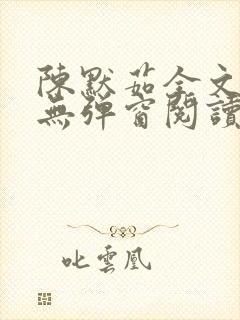 陳默茹全文
無彈窗閱讀
叱雲凰